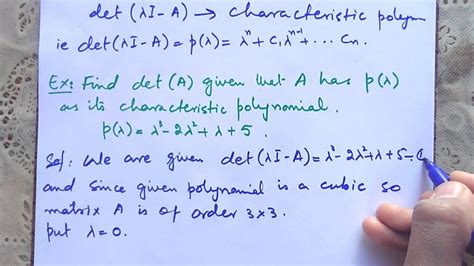 det (λI-A) → characteristic polynom
ie det(λI-A) = p(λ) = λⁿ + c₁λⁿ⁻¹ + ... Cn.
Ex: Find det (A) given that A has p(λ)
as its characteristic polynomial.
p(λ) = λ³-2λ²+λ+5.
Sol: We are given det (λI-A) = λ³-2λ²+λ+5-
and since given polynomial is a cubic so
matrix A is of order 3x3.
put λ=0.